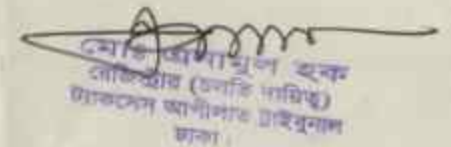 মোঃ এনামুল হক
রেজিস্ট্রার (চলতি দায়িত্ব)
ট্যাকসেস আপীলাত ট্রাইবুনাল
ঢাকা।